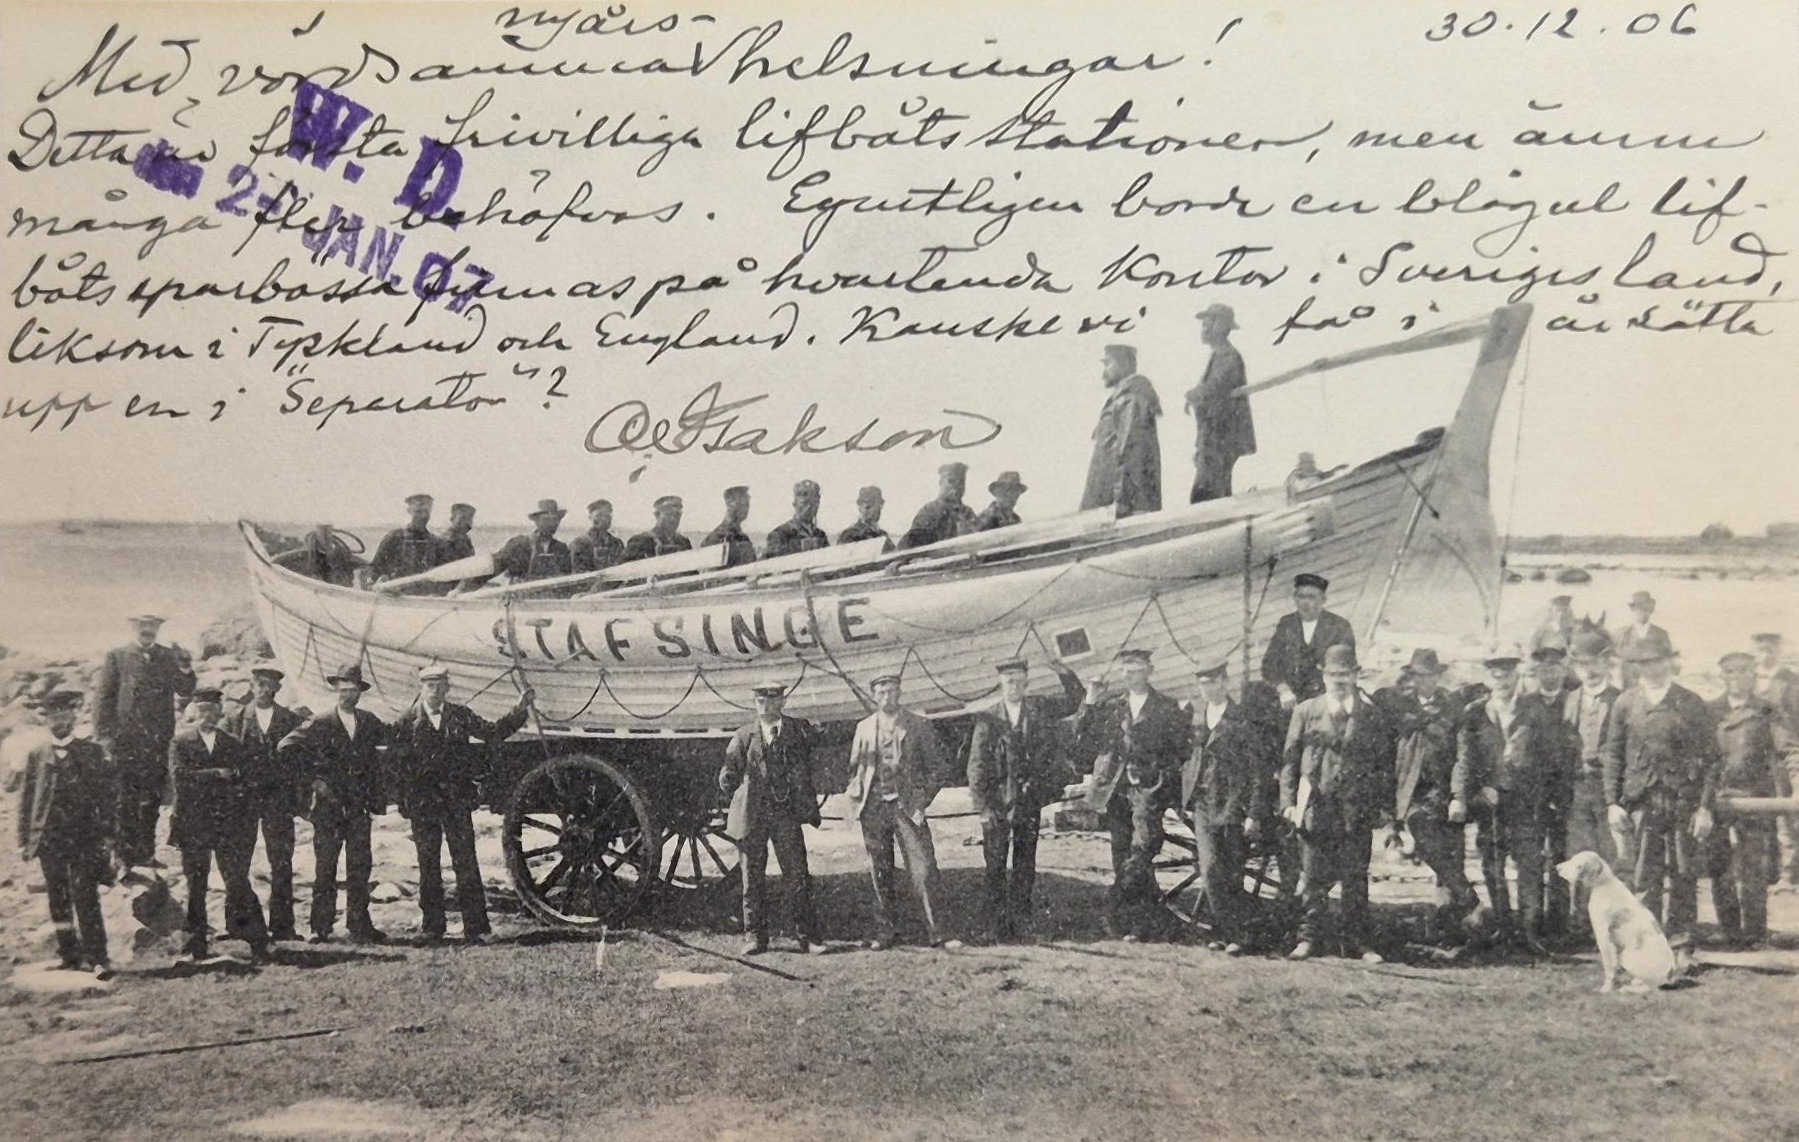 30.12.06
nyårs-
Med vördsamma helsningar!
Detta är första frivilliga lifbåtsstationen, men ännu
många fler behöfvas. Egentligen borde en blågul lif-
båtssparbössa finnas på hvartenda Kontor i Sveriges land,
liksom i Tyskland och England. Kanske vi få i år sätta
upp en i "Separator"?
Isakson
W. D.
2- JAN. 07
STAFSINGE